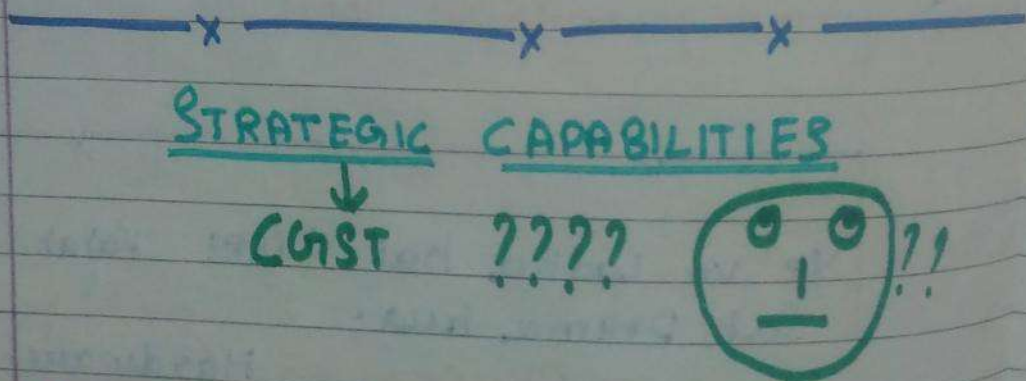 STRATEGIC CAPABILITIES
CGST ???? ??